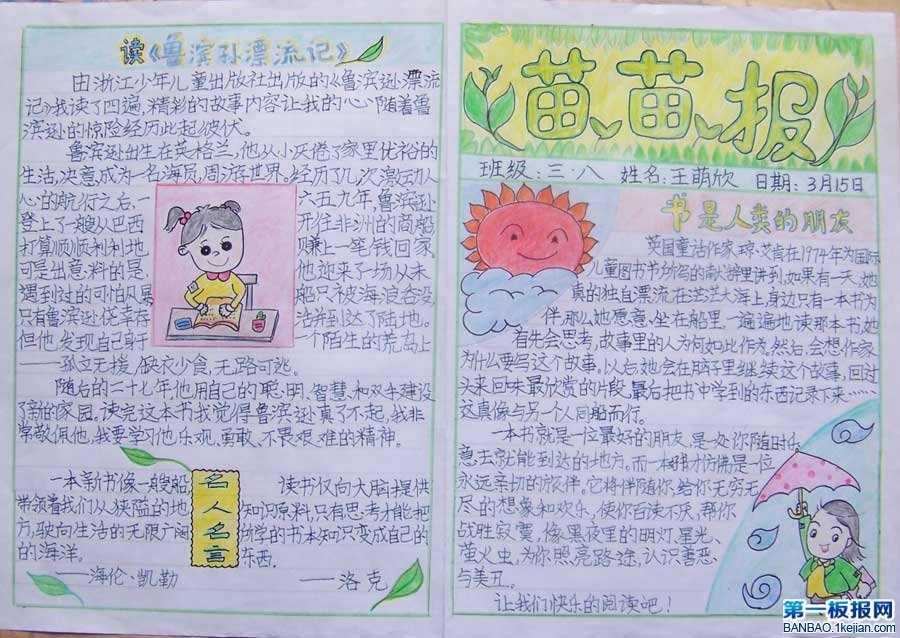 读《鲁滨孙漂流记》
由浙江少年儿童出版社出版的《鲁滨逊漂流
记》我读了四遍,精彩的故事内容让我的心随着鲁
滨逊的惊险经历此起彼伏。
鲁滨逊出生在英格兰,他从小厌倦了家里优裕的
生活,决意成为一名海员,周游世界。经历了几次激动人
心的航行之后,一六五九年,鲁滨逊
登上了一艘从巴西开往非洲的商船
打算顺顺利利地赚上一笔钱回家
可是出意料的是,他迎来了一场从未
遇到过的可怕风暴船只被海浪吞没
只有鲁滨逊侥幸存活并到达了陆地。
但他发现自己身于一个陌生的荒岛上
——孤立无援,缺衣少食,无路可逃。
随后的二十七年他用自己的聪明、智慧和双手建设
了新的家园。读完这本书我觉得鲁滨逊真了不起,我非
常敬佩他,我要学习他乐观、勇敢、不畏艰难的精神。
一本新书像一艘船
带领着我们从狭隘的地
方,驶向生活的无限广阔
的海洋。
——海伦·凯勒
名人名言
读书仅向大脑提供
知识原料,只有思考才能把
所学的书本知识变成自己的
东西
——洛克
苗苗报
班级:三·八 姓名:王萌欣 日期:3月15日
书是人类的朋友
英国童话作家琼·艾肯在1974年为国际
儿童图书节所写的献辞里讲到,如果有一天,她
真的独自漂流在茫茫大海上,身边只有一本书为
伴,那么她愿意坐在船里,一遍遍地读那本书,她
首先会思考,故事里的人为何如此作为。然后,会想作家
为什么要写这个故事,以后她会在脑子里继续这个故事,回过
头来回味最欣赏的片段,最后把书中学到的东西记录下来……
这真像与另一个人同船而行。
一本书就是一位最好的朋友,是一处你随时乐
意去就能到达的地方。而一本好书仿佛是一位
永远亲切的旅伴。它将伴随你,给你无穷无
尽的想象和欢乐,使你百读不厌,帮你
战胜寂寞,像黑夜里的明灯、星光、
萤火虫,为你照亮路途,认识善恶
与美丑。
让我们快乐的阅读吧!
第一板报网
BANBAO.1kejian.com